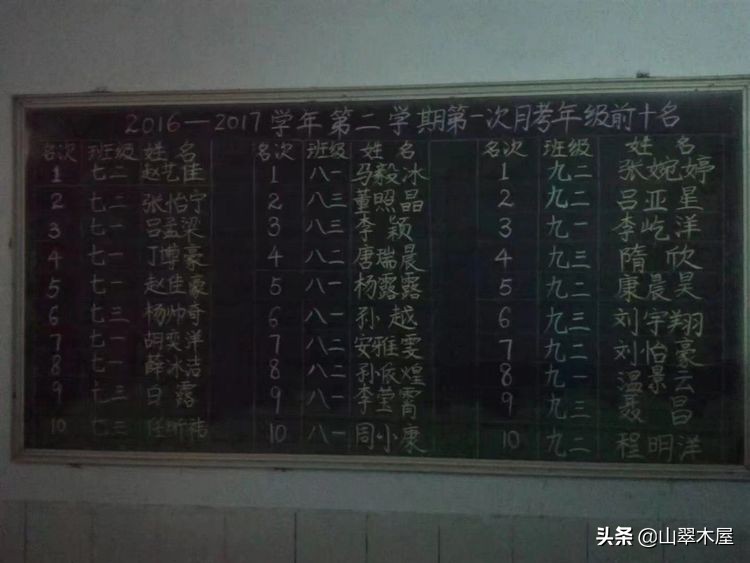 2016—2017学年第二学期第一次月考年级前十名
名次 班级 姓名 名次 班级 姓名 名次 班级 姓名
1 七二 赵艺佳 1 八一 马毅冰 1 九二 张婉婷
2 七二 张怡宁 2 八三 董照晶 2 九二 吕亚星
3 七一 吕孟梁 3 八三 李颖 3 九一 李屹洋
4 七一 丁博豪 4 八二 唐瑞晨 4 九三 隋欣
5 七一 赵佳豪 5 八一 杨露露 5 九二 康晨昊
6 七三 杨帅奇 6 八一 孙越 6 九三 刘宇翔
7 七一 胡奕洋 7 八二 安雅雯 7 九二 刘怡豪
8 七一 薛冰洁 8 八二 孙派煌 8 九一 温景云
9 七三 白露 9 八一 李萱霄 9 九三 聂昌
10 七三 任昕祎 10 八一 周小康 10 九二 程明洋
头条 @山翠木屋